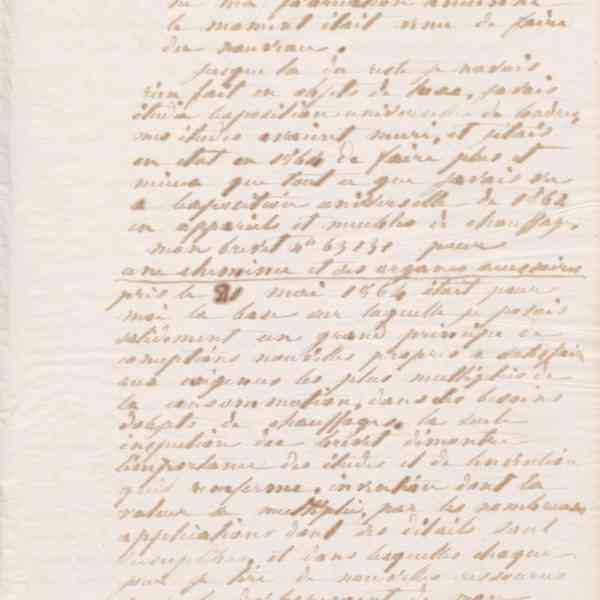 le moment était venu de faire
du nouveau.
jusque la du reste je navais
rien fait en objets de luxe, javais
étudié lexposition universelle de Londres,
mes études avaient muri, et jétais
en état en 1864 de faire plus et
mieux que tout ce que javais vu
a lexposition universelle de 1862
en appareils et meubles de chauffage.
mon brevet no 63131 pour
une cheminée et des organes accessoires
pris le 21 mai 1864 était pour
moi la base sur laquelle je posais
un grand principe de
conceptions nouvelles propres a satisfaire
aux exigences les plus multipliées de
la consommation, dans les besoins
dobjets de chauffage. la seule
inspection du brevet démontre
limportance des études et de linvention
quil renferme, invention dont la
valeur se multiplie, par les nombreuses
applications dont ses détails sont
susceptibles, et dans lesquelles chaque
jour je tire de nouvelles ressources